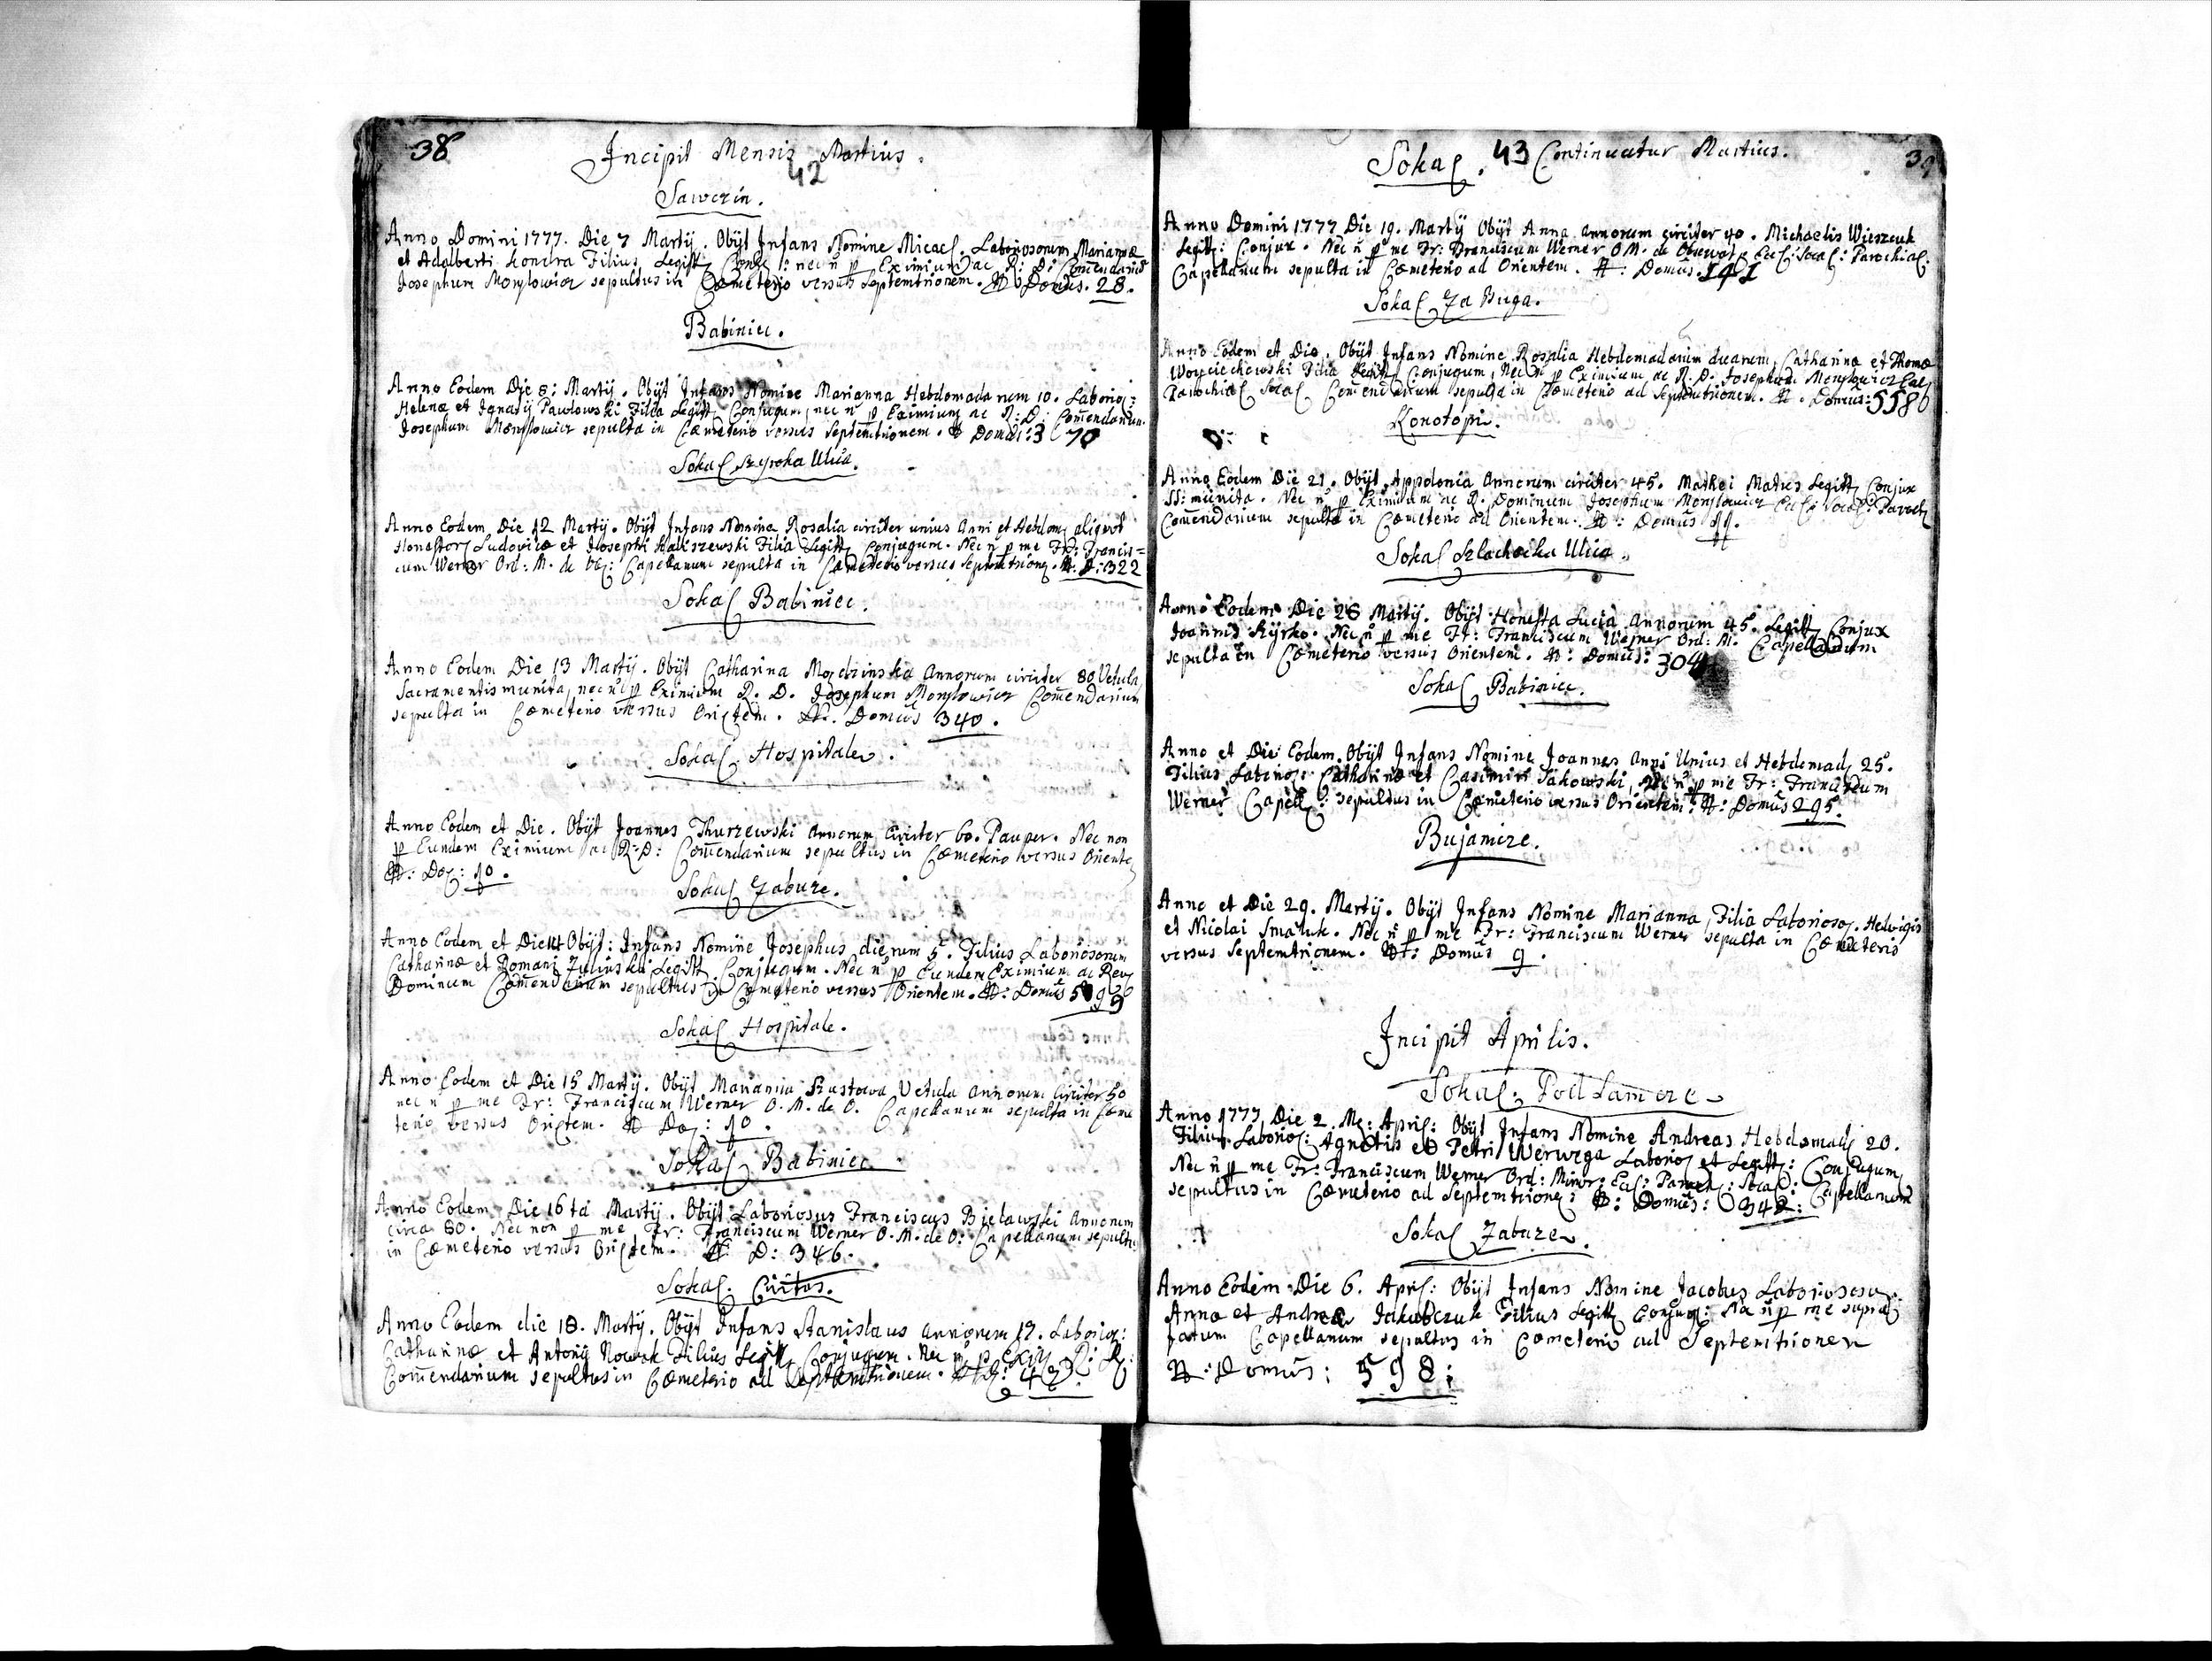 38
Incipit Mensis Martius.
42
Sawczin.
Anno Domini 1777. Die 7 Martij. Obijt Infans Nomine Micael. Laboriosorum Mariannæ
et Adalberti Kondra Filius Legitt Conjg: nec ñ p Eximium ac R: D: Com̃endariũ
Josephum Monslowicz sepultus in Cæmeterio versus Septemtrionem. N Domus. 28.
Babiniec.
Anno Eodem Die 8: Martij. Obijt Infans Nomine Marianna Hebdomadarum 10. Laborios:
Helenæ et Ignatij Pawlowski Filia Legitt Conjugum, nec ñ p Eximium ac R: D: Com̃endarium
Josephum Monslowicz sepulta in Cæmeterio versus Septemtrionem. N Domûs: 370
Sokal Szyroka Ulica.
Anno Eodem Die 12 Martij. Obijt Infans Nomine Rosalia circiter unius Anni et Hebdom: aliquot
Honestor: Ludovicæ et Josephi Kaliszewski Filia Legitt Conjugum. Nec ñ p me Fr: Francis=
cum Werner Ord: M. de Ob: Capellanum sepulta in Cæmeterio versus Septemtrion. N: D: 322
Sokal Babiniec.
Anno Eodem Die 13 Martij. Obijt Catharina Modzinska Annorum circiter 80 Vetula
Sacramentis munita, nec ñ p Eximium R. D. Josephum Monslowicz Com̃endarium
sepulta in Cæmeterio versus Orietem. N. Domûs 340.
Sokal Hospitale.
Anno Eodem et Die. Obijt Joannes Thurzewski annorum circiter 60. Pauper. Nec non
p Eundem Eximium ac R: D: Com̃endarium sepultus in Cæmeterio versus Oriente
N: Do: 10.
Sokal Zabuze.
Anno Eodem et Die 14 Obijt: Infans Nomine Josephus dierum 5. Filius Laboriosorum
Catharinæ et Romani Zulinski Legitt Conjugum. Nec ñ p Eundem Eximium ac Rev
Dominum Com̃endarium sepultus in Cæmeterio versus Orientem. N: Domûs
Sokal Hospitale.
Anno Eodem et Die 15 Martij. Obijt Marianna Szustowa Vetula annorum circiter 50
nec ñ p me Fr: Franciscum Werner O. M. de O. Capellanum sepulta in Cæme
terio versus Orietem. N Do: 10.
Sokal Babiniec.
Anno Eodem Die 16ta Martij. Obijt Laboriosus Franciscus Bielawski Annorum
circa 60. Nec non p me Fr: Franciscum Werner O. M. de O: Capellanum sepultus
in Cæmeterio versus Orietem. N D: 346.
Sokal. Civitas.
Anno Eodem die 18. Martij. Obijt Infans Stanislaus annorum 12. Laborior:
Catharinæ et Antonij Nowak Filius Legitt Conjugum. Nec ñ p
Com̃endarium sepultus in Cæmeterio ad Septemtrionem.
39
Sokal. 43 Continuatur Martius.
Anno Domini 1777 Die 19. Martij Obijt Anna annorum circiter 40. Michaelis Wieszczuk
Legitt: Conjux. Nec ñ p me Fr: Franciscum Werner O M. de Observat. Eccl: Socal: Parochial:
Capellanum sepulta in Cæmeterio ad Orientem. N: Domûs. 141
Sokal Za Buga.
Anno Eodem et Die. Obijt Infans Nomine Rosalia Hebdomadarum duarum, Catharinæ et Thomæ
Woyciechowski Filia Legitt Conjugum, Nec ñ p Eximium ac R. D. Josephum Monslowicz Ecc
Parochial Socal Com̃endarium sepulta in Cæmeterio ad Septemtrionem. N. Domus:
Konotopi.
Anno Eodem Die 21. Obijt Appolonia annorum circiter 45. Mathei Matus Legitt Conjux
SS: munita. Nec ñ p Eximium ac R. Dominum Josephum Monslowicz Eccl: Socal: Paroch
Com̃endarium sepulta in Cæmeterio ad Orientem. N: Domûs 11.
Sokal Szlachecka Ulica.
Anno Eodem Die 28 Martij. Obijt Honesta Lucia Annorum 45. Legitt Conjux
Joannis Kyrko. Nec ñ p me Fr: Franciscum Werner Ord: M. Capellanum
sepulta in Cæmeterio versus Orientem. N: Domûs: 304
Sokal Babiniec.
Anno et Die Eodem. Obijt Infans Nomine Joannes Anni Unius et Hebdomad 25.
Filius Laborios: Catharinæ et Casimiri Sakowski, Nec ñ p me Fr: Franciscum
Werner Capell: sepultus in Cæmeterio versus Orientem: N: Domûs 295.
Bujamcze.
Anno et Die 29. Martij. Obijt Infans Nomine Marianna, Filia Laborioso. Hedvigis
et Nicolai Smaluk. Nec ñ p me Fr: Franciscum Werner sepulta in Cæmeterio
versus Septemtrionem. N: Domûs 9.
Incipit Aprilis.
Sokal: Pod Zamcze
Anno 1777 Die 2. M: April: Obijt Infans Nomine Andreas Hebdomad 20.
Filius Laborios: Agnetis et Petri Werwega Laborios et Legitt: Conjugum
Nec ñ p me Fr: Franciscum Werner Ord: Minor: Eccl: Paroch: Socal: Capellanum
sepultus in Cæmeterio ad Septemtrione: N: Domûs: 342:
Sokal Zabuze.
Anno Eodem Die 6. April: Obijt Infans Nomine Jacobus Laboriosoru
Annæ et Andreæ Jakubczuk Filius Legitt Conjug: Nec ñ p me supra
fatum Capellanum sepultus in Cæmeterio ad Septemtrionem
N: Domûs: 598: